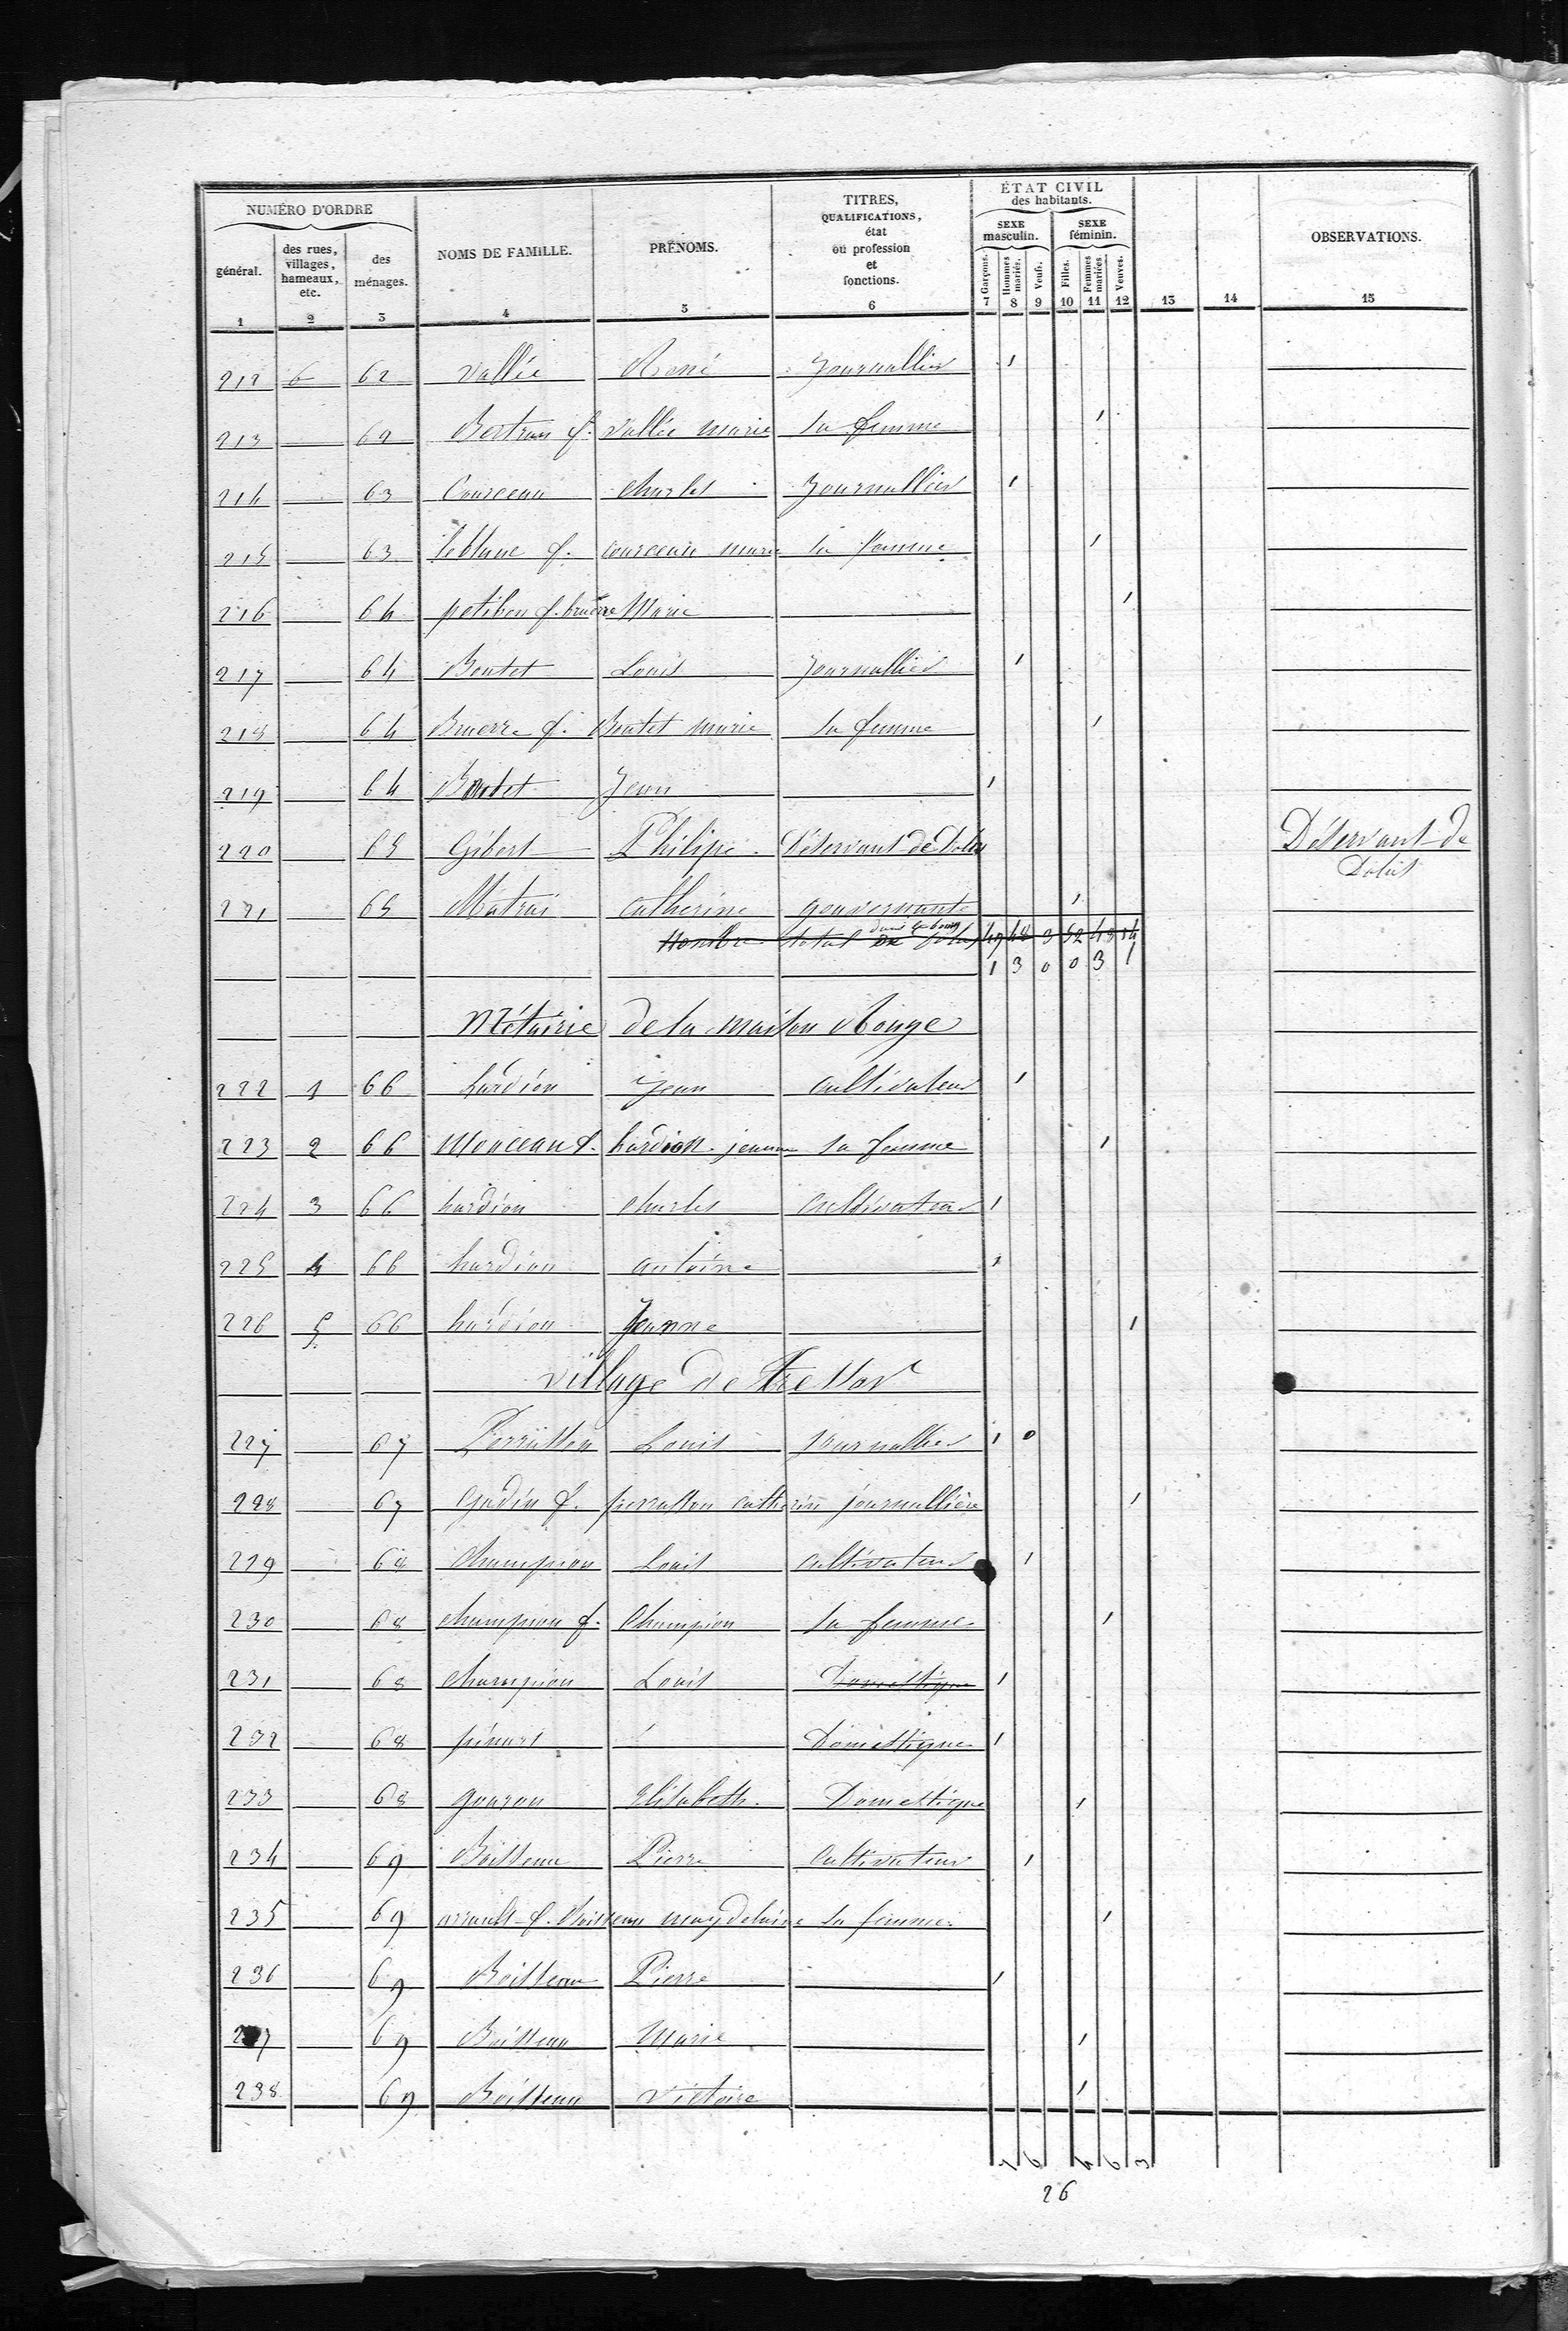 NUMÉRO D'ORDRE NOMS DE FAMILLE. PRÉNOMS. TITRES, QUALIFICATIONS, état ou profession et fonctions. ÉTAT CIVIL des habitants. OBSERVATIONS.
général. des rues, villages, hameaux, etc. des ménages. SEXE masculin. SEXE féminin.
Garçons. Hommes mariés. Veufs. Filles. Femmes mariées. Veuves.
1 2 3 4 5 6 7 8 9 10 11 12 13 14 15
212 6 62 Vallée René Journallier 1
213 62 Bertran f. Vallée marie Sa femme 1
214 63 Courceau Charles Journallier 1
215 63 leblanc f. courceau marie Sa femme 1
216 64 petibon f. bruère Marie 1
217 64 Boutet Louis Journallier 1
218 64 Bruerre f. Boutet marie Sa femme 1
219 64 Boutet Jean 1
220 65 Gibert Philipe Déservant de Dolus Déservant de Dolus
221 65 Matrai catherine gouvernante 1
Nombre total dans le bourg de Dolus 49 48 3 52 48 14
1 3 0 0 3 1
Métairie de la maison Rouge
222 1 66 hardion Jean Cultivateur 1
223 2 66 Monceau f. hardion jeanne sa femme 1
224 3 66 hardion Charles Cultivateur 1
225 4 66 hardion antoine 1
226 5 66 hardion Jeanne 1
village de
227 67 Perruston Louis Journallier 1 0
228 67 Gadin f. perruston catherin journallière 1
229 68 Champion Louis cultivateur 1
230 68 champion f. Champion Sa femme 1
231 68 Champion Louis Domestique 1
232 68 Domestique 1
233 68 gouron Elisabeth Domestique 1
234 69 Boisseau Pierre Cultivateur 1
235 69 arrault f. Boisseau magdelaine Sa femme 1
236 69 Boisseau Pierre 1
237 69 Boisseau Marie 1
238 69 Boisseau Victoire 1
7 6 4 6 3
26